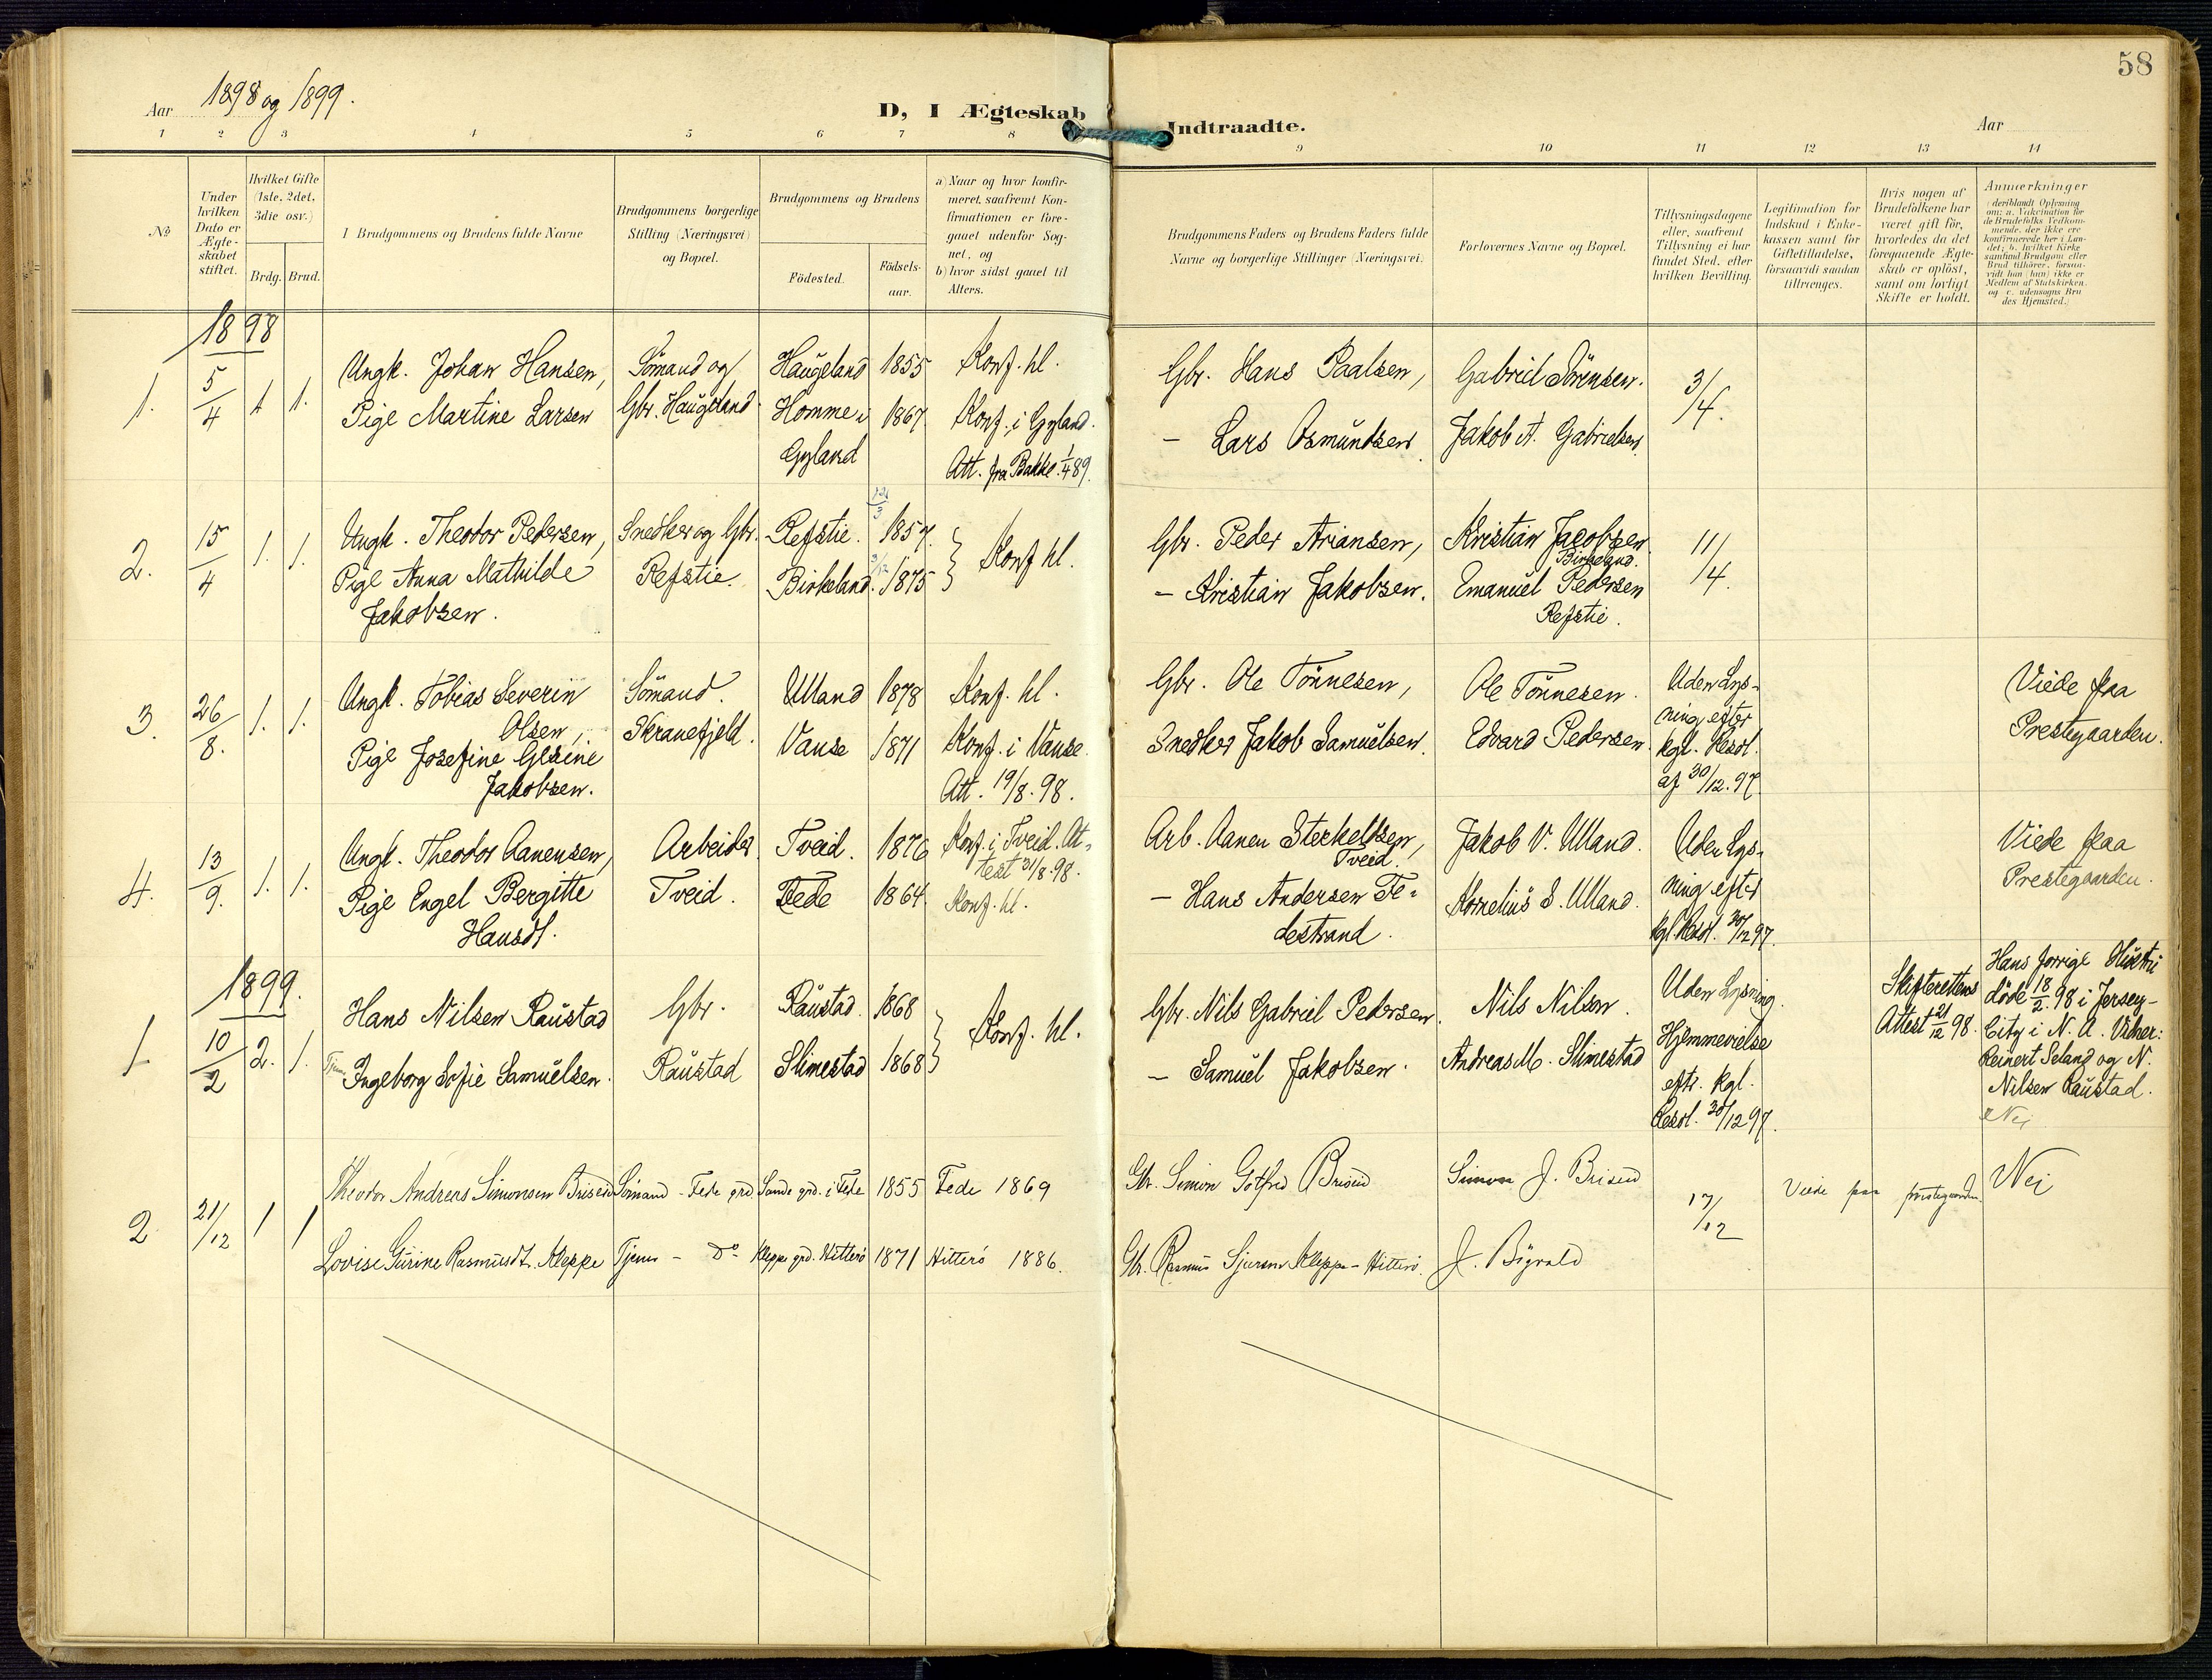 58
Aar 1898 og 1899.
D, I Ægteskab Indtraadte.
Aar
1 2 3 4 5 6 7 8 9 10 11 12 13 14
No
Under hvilken Dato er Ægteskabet stiftet.
Hvilket Gifte (1ste, 2det, 3die osv.)
Brdg. Brud.
I Brudgommens og Brudens fulde Navne
Brudgommens borgerlige Stilling (Næringsvei) og Bopæl.
Brudgommens og Brudens
Födested.
Födselsaar.
a) Naar og hvor konfirmeret, saafremt Konfirmationen er foregaaet udenfor Sognet, og
b) hvor sidst gaaet til Alters.
Brudgommens Faders og Brudens Faders fulde Navne og borgerlige Stillinger (Næringsvei)
Forlovernes Navne og Bopæl.
Tillysningsdagene eller, saafremt Tillysning ei har fundet Sted, efter hvilken Bevilling.
Legitimation for Indskud i Enkekassen samt for Giftetilladelse, forsaavidt saadan tiltrænges.
Hvis nogen af Brudefolkene har været gift för, hvorledes da det foregaaende Ægteskab er oplöst, samt om lovligt Skifte er holdt.
Anmærkninger (deriblandt Oplysning om: a. Vakcination for de Brudefolks Vedkommende, der ikke ere konfirmerede her i Landet; b. hvilket Kirkesamfund Brudgom eller Brud tilhörer, forsaavidt han (hun) ikke er Medlem af Statskirken, og c. udensogns Brudes Hjemsted.)
1898
1. 5/4 1 1.
Ungk. Johan Hansen,
Pige Martine Larsen
Sömand og
Gbr. Haugeland
Haugeland 1855
Homme i Gyland 1867
Konf. hl.
Konf. i Gyland.
Att. fra Bakke 1/4 89.
Gbr. Hans Paalsen,
- Lars Osmundsen
Gabriel Sörensen.
Jakob A. Gabrielsen
3/4.
2. 15/4 1. 1.
Ungk. Theodor Pedersen,
Pige Anna Mathilde
Jakobsen.
Snedker og Gbr.
Refstie.
Refstie. 1857.
Birkeland. 1875
Konf hl.
Gbr. Peder Ariansen,
- Kristian Jakobsen.
Kristian Jacobsen
Birkeland.
Emanuel Pedersen
Refstie.
11/4.
3. 26/8. 1. 1.
Ungk. Tobias Severin
Olsen,
Pige Josefine Gesine
Jakobsen.
Sömand.
Skranefjeld.
Ulland 1878
Vanse 1871
Konf. hl.
Konf. i Vanse
Att. 19/8. 98.
Gbr. Ole Tönnesen,
Snedker Jakob Samuelsen.
Ole Tönnesen.
Edvard Pedersen.
Uden Lys-
ning efter
kgl. Resol.
af 30/12. 97.
Viede paa
Prestegaarden.
4. 13/9. 1. 1.
Ungk. Theodor Aanensen,
Pige Engel Bergitte
Hansdt.
Arbeider
Tveid.
Tveid. 1876
Fede 1864.
Konf. i Tveid. At-
test 31/8. 98.
Konf. hl.
Arb. Aanen Sterkeldsen,
Tveid.
- Hans Andersen Fe-
destrand.
Jakob V. Ulland.
Kornelius S. Ulland.
Uden Lys-
ning efter
kgl. Resol. 30/12 97.
Viede paa
Prestegaarden.
1899.
1 10/2 2. 1.
Hans Nilsen Raustad
Tjen. Ingeborg Sofie Samuelsen.
Gbr.
Raustad
Raustad. 1868
Slimestad 1868
Konf. hl.
Gbr. Nils Gabriel Pedersen.
- Samuel Jakobsen.
Nils Nilsen.
Andreas M. Slimestad
Uden Lysning.
Hjemmevielse
eftr. kgl.
Resol. 30/12 97.
Skifterettens
Attest 21/12 98.
Hans forrige Hustru
döde 18/2. 98 i Jersey-
City i N. A. Vidner:
Reinert Seland og N.
Nilsen Raustad.
Nei
2 21/12 1 1
Theodor Andreas Simonsen Briseid
Lovise Gurine Rasmusdt. Kleppe
Sömand - Fede grd
Tjener - Do
Sande grd. i Fede 1855
Kleppe grd. Hitterö 1871
Fede 1869
Hitterö 1886.
Gbr. Simon Gotfred Briseid
Gbr. Rasmus Sjursen Kleppe - Hitterö.
Simon J. Briseid
J. Bigvald
17/12
Viede paa prestegaarden
Nei